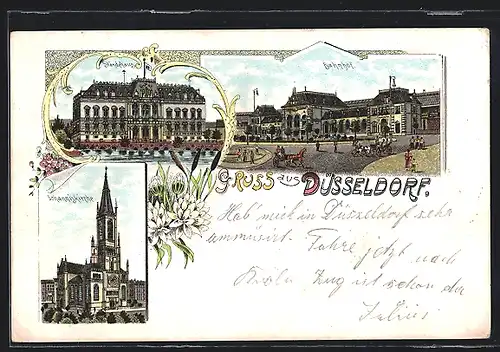 Ständehaus
Bahnhof
Johanniskirche
GRUSS aus DÜSSELDORF.
Hab' mich in Düsseldorf sehr
amüsirt. Fahre jetzt nach
Köln. Zug ist schon da
Julius